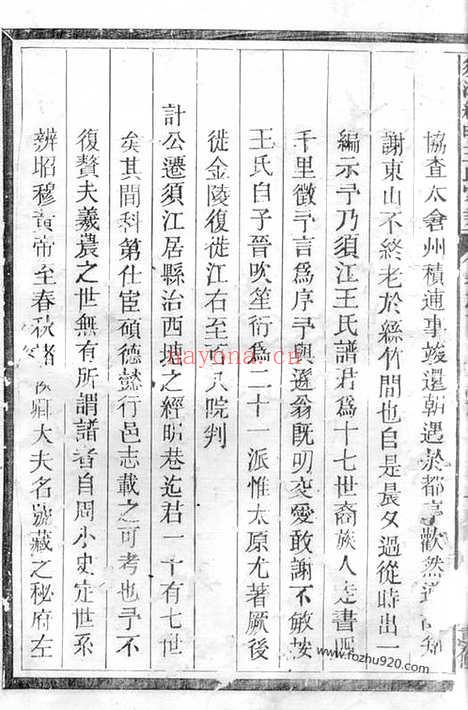 協查太倉州積逋事竣還朝遇於都亭歡然道
謝東山不終老於絲竹間也自是晨夕過從時出一
編示予乃須江王氏譜君爲十七世裔族人走書四
千里徵予言爲序予與遜翁旣明交愛敢謝不敏按
王氏自子晉吹笙衍爲二十一派惟太原尤著厥後
徙金陵復徙江右至 八院判
計公遷須江居縣治西塘之經畈巷迄君一十有七世
矣其間科第仕宦碩德懿行邑志載之可考也予不
復贅夫羲農之世無有所謂譜者自周小史定世系
辨昭穆黃帝至春秋諸侯卿大夫名號藏之秘府左
nayona.cn
www.fozhu920.com